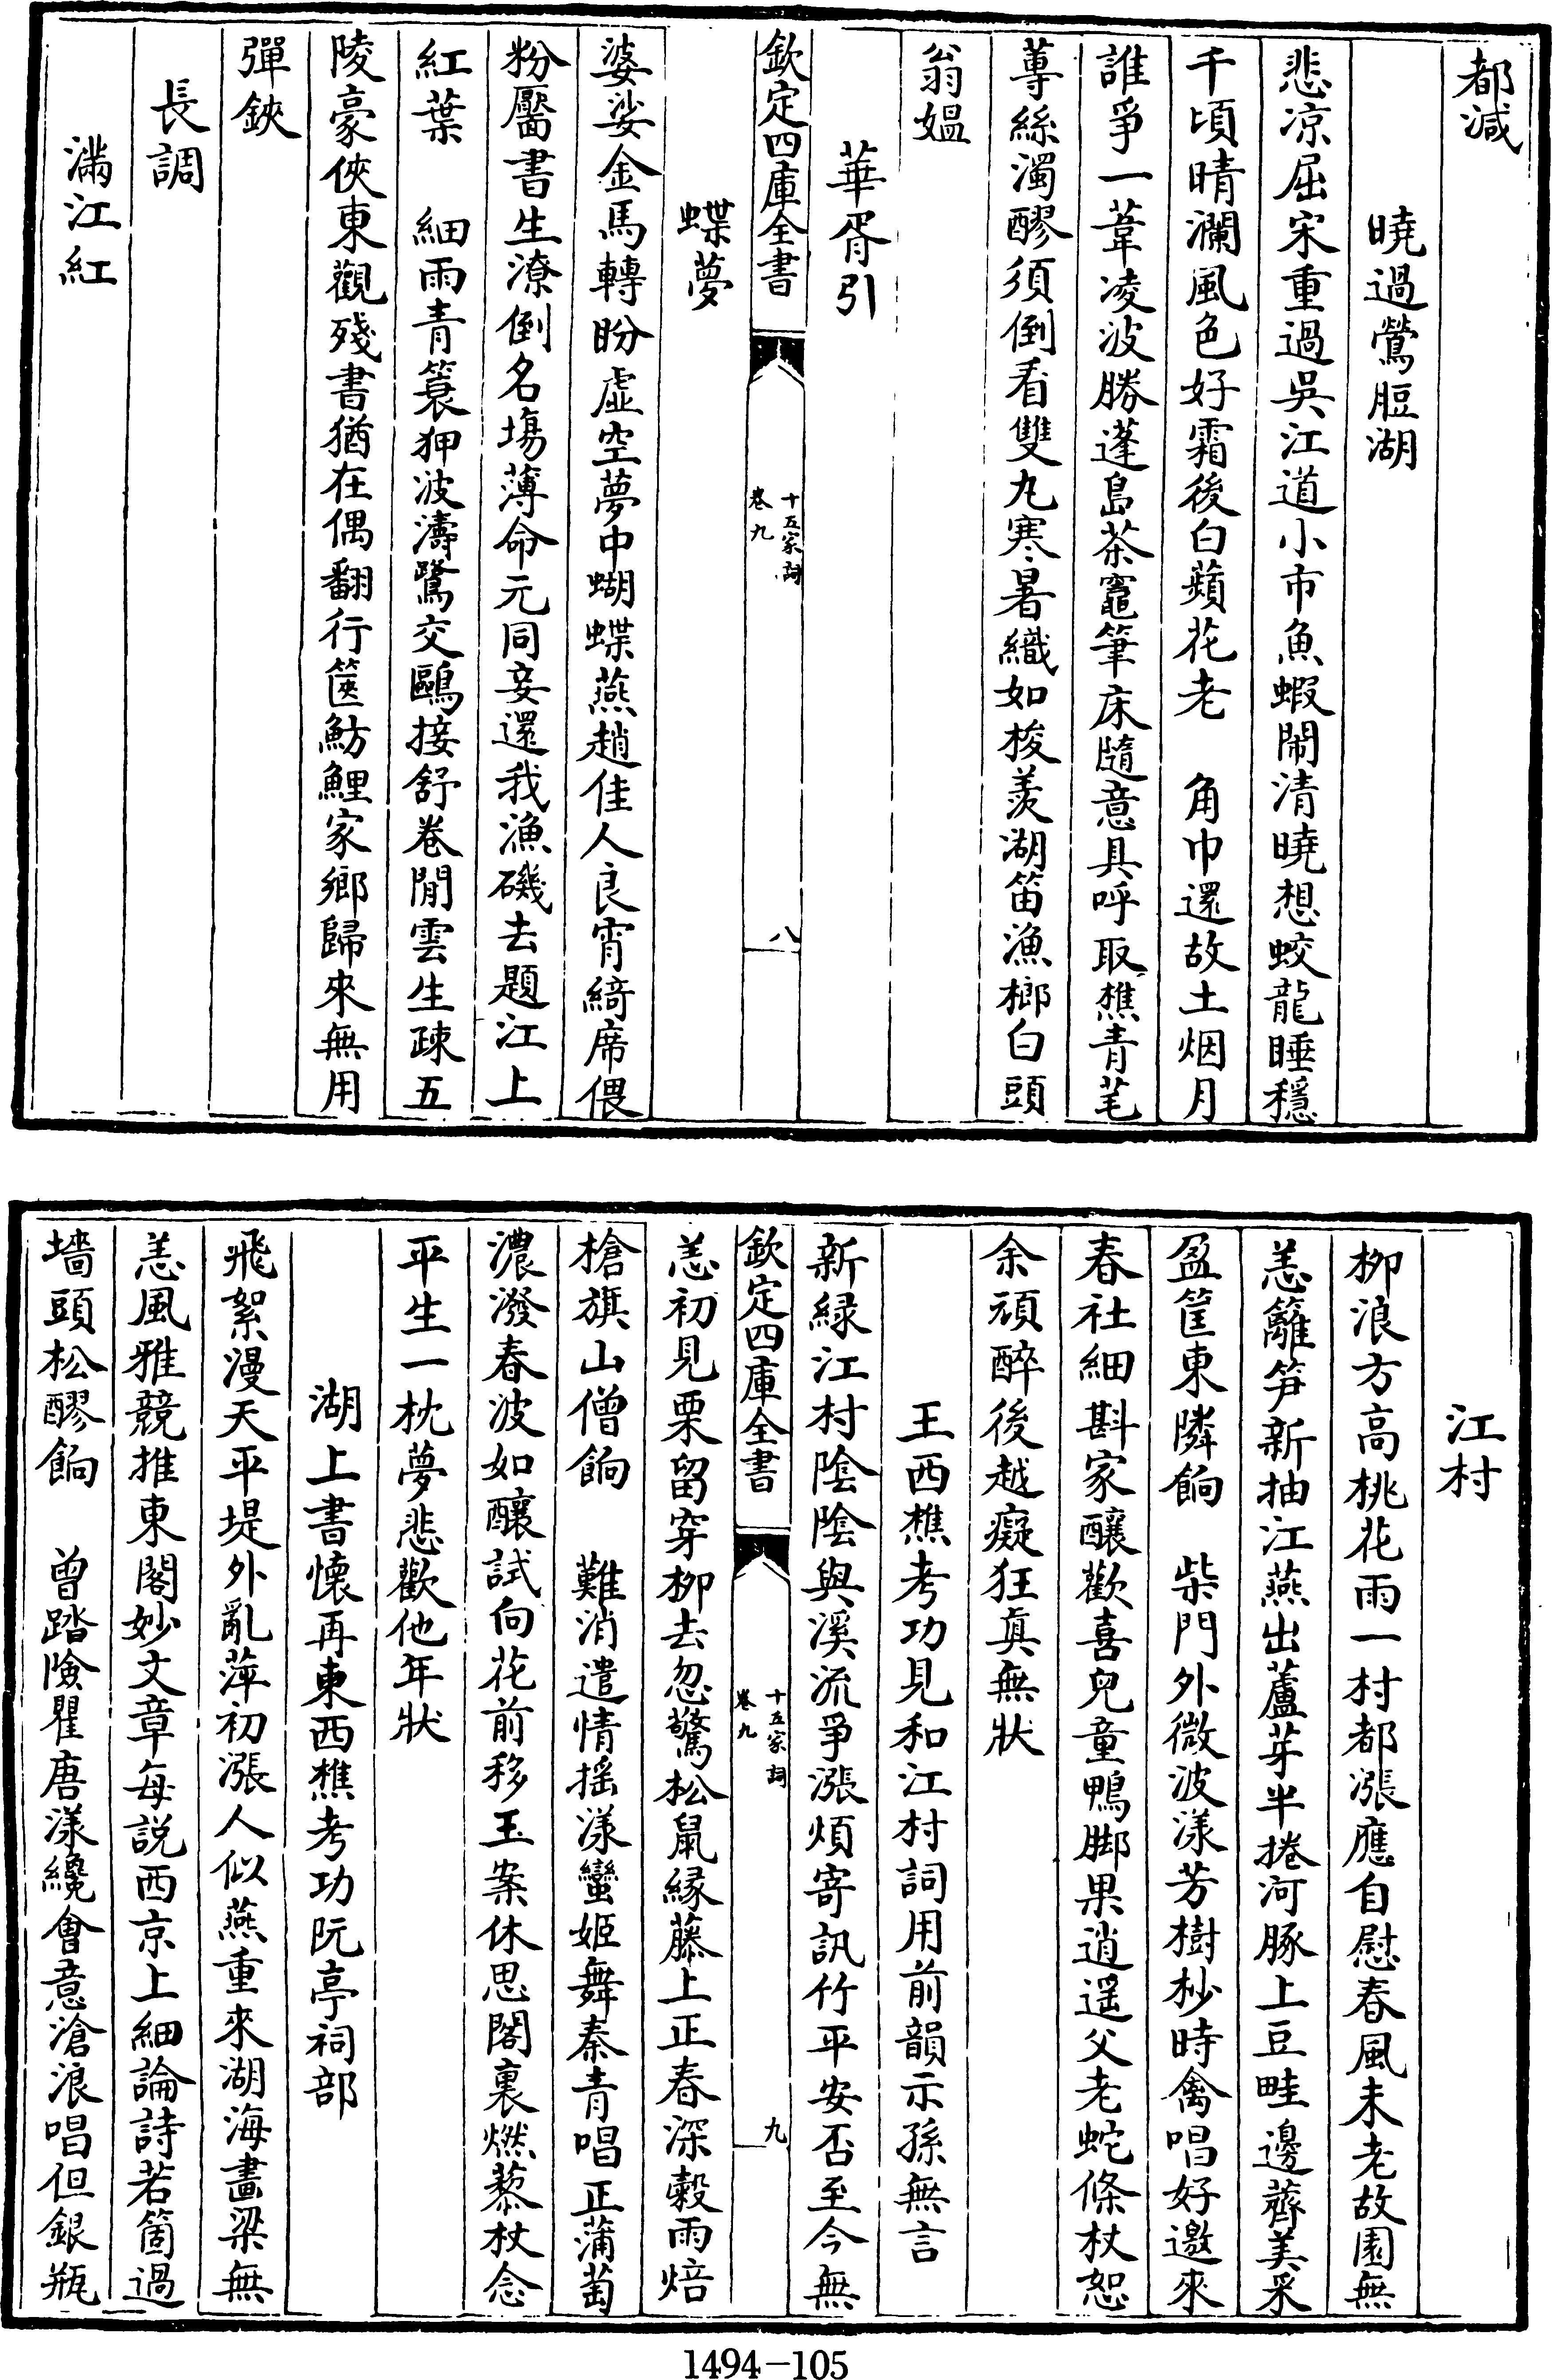 都減
曉過鶯脰湖
悲凉屈宋重過吳江道小市魚蝦鬧清曉想蛟龍睡穩
千頃晴瀾風色好霜後白蘋花老　角巾還故土烟月
誰爭一葦凌波勝蓬島茶竈筆床隨意具呼取樵青芼
蓴絲濁醪須倒看雙丸寒暑織如梭羨湖笛漁榔白頭
翁媼
華胥引
欽定四庫全書
十五家詞
卷九
八
蝶夢
婆娑金馬轉盼虛空夢中蝴蝶燕趙佳人良宵綺席偎
粉靨書生潦倒名塲薄命元同妾還我漁磯去題江上
紅葉　細雨青簑狎波濤鷺交鷗接舒卷閒雲生疎五
陵豪俠東觀殘書猶在偶翻行篋魴鯉家鄉歸來無用
彈鋏
長調
滿江紅
江村
柳浪方高桃花雨一村都漲應自慰春風未老故園無
恙籬笋新抽江燕出蘆芽半捲河豚上豆畦邊薺美采
盈筐東隣餉　柴門外微波漾芳樹杪時禽唱好邀來
春社細斟家釀歡喜兒童鴨脚果逍遥父老蛇條杖恕
余頑醉後越癡狂真無狀
王西樵考功見和江村詞用前韻示孫無言
新緑江村陰陰與溪流爭漲煩寄訊竹平安否至今無
欽定四庫全書
十五家詞
卷九
九
恙初見栗留穿柳去忽驚松鼠緣藤上正春深穀雨焙
槍旗山僧餉　難消遣情揺漾蠻姬舞秦青唱正蒲萄
濃潑春波如釀試向花前移玉案休思閣裏燃藜杖念
平生一枕夢悲歡他年狀
湖上書懷再柬西樵考功阮亭祠部
飛絮漫天平堤外亂萍初漲人似燕重來湖海畫梁無
恙風雅競推東閣妙文章每説西京上細論詩若箇過
墻頭松醪餉　曾踏險瞿唐漾纔會意滄浪唱但銀瓶
1494-105